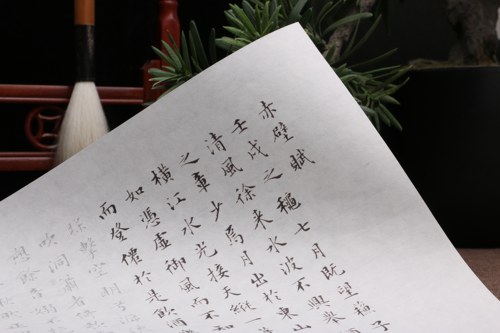 赤壁賦
壬戌之穐七月既望蘓子
清風徐来水波不興舉
之章少焉月出於東山
橫江水光接天縱一
如憑虛御風而不知
而登僊於是飲酒
擊空明